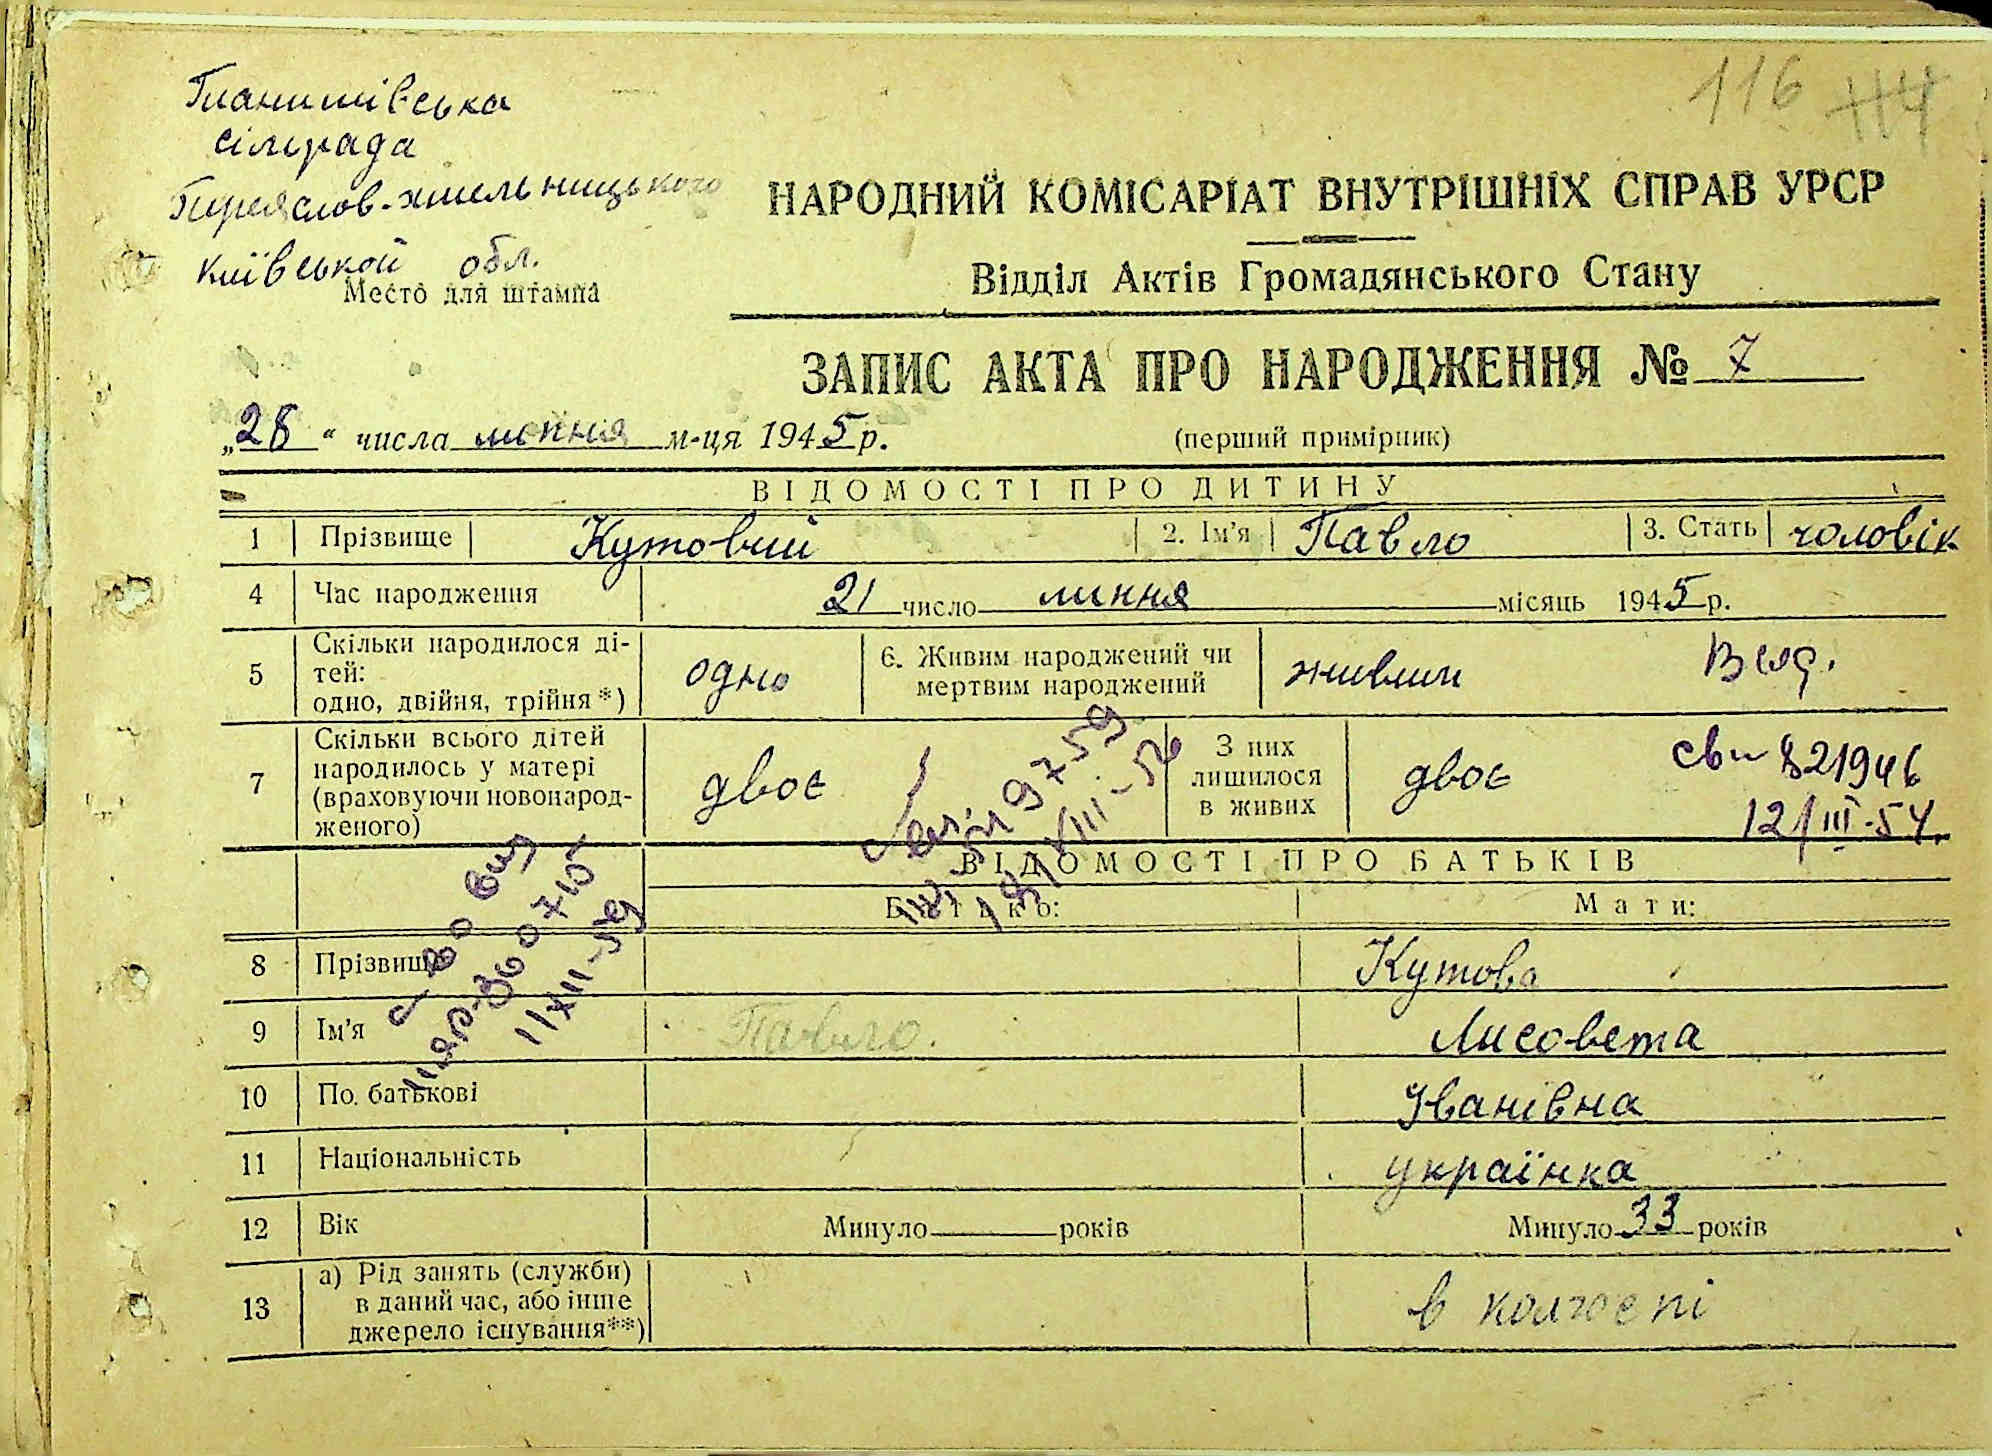 116 114
Гланишівська
сілрада
Переяслов-хмельницького
київської обл.
Место для штампа
НАРОДНИЙ КОМІСАРІАТ ВНУТРІШНІХ СПРАВ УРСР
Відділ Актів Громадянського Стану
ЗАПИС АКТА ПРО НАРОДЖЕННЯ № 7
„28“ числа липня м-ця 1945 р. (перший примірник)
ВІДОМОСТІ ПРО ДИТИНУ
1 Прізвище Кутовий 2. Ім'я Павло 3. Стать чоловік
4 Час народження 21 число липня місяць 1945 р.
5 Скільки народилося ді-
тей:
одно, двійня, трійня *) одно 6. Живим народжений чи
мертвим народжений живим
7 Скільки всього дітей
народилось у матері
(враховуючи новонарод-
женого) двоє З них
лишилося
в живих двоє
821946
12/III-54.
ВІДОМОСТІ ПРО БАТЬКІВ
Батько: Мати:
8 Прізвище Кутова
9 Ім'я Павло. Лисовета
10 По батькові Іванівна
11 Національність українка
12 Вік Минуло років Минуло 33 років
13 а) Рід занять (служби)
в даний час, або інше
джерело існування**) в колгоспі